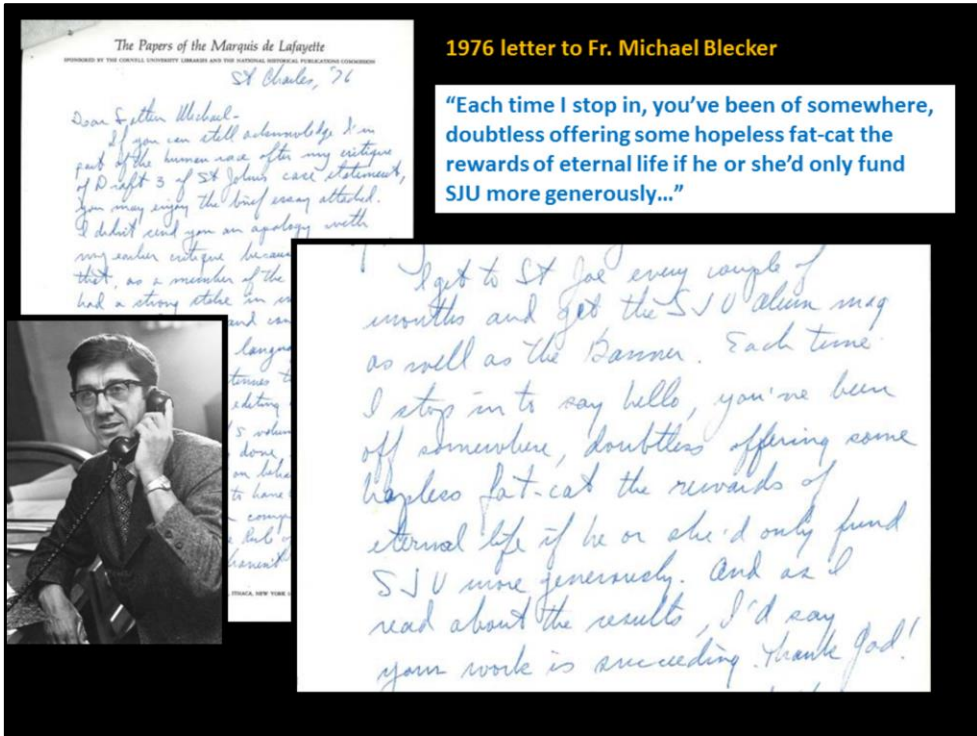 The Papers of the Marquis de Lafayette
SPONSORED BY THE CORNELL UNIVERSITY LIBRARIES AND THE NATIONAL HISTORICAL PUBLICATIONS COMMISSION
St Charles, '76
Dear Father Michael-
If you can still acknowledge I'm
part of the human race after my critique
of Draft 3 of St John's case statement,
you may enjoy the brief essay attached.
I didn't send you an apology with
my earlier critique becau
that, as a member of the
had a strong stake in
and can
langua
editing
's volum
done,
on beha
to have
, ITHACA, NEW YORK
1976 letter to Fr. Michael Blecker
“Each time I stop in, you’ve been of somewhere,
doubtless offering some hopeless fat-cat the
rewards of eternal life if he or she’d only fund
SJU more generously…”
I get to St Joe every couple of
months and get the SJU alum mag
as well as the Banner. Each time
I stop in to say hello, you've been
off somewhere, doubtless offering some
hapless fat-cat the rewards of
eternal life if he or she'd only fund
SJU more generously. And as I
read about the results, I'd say
your work is succeeding. Thank God!